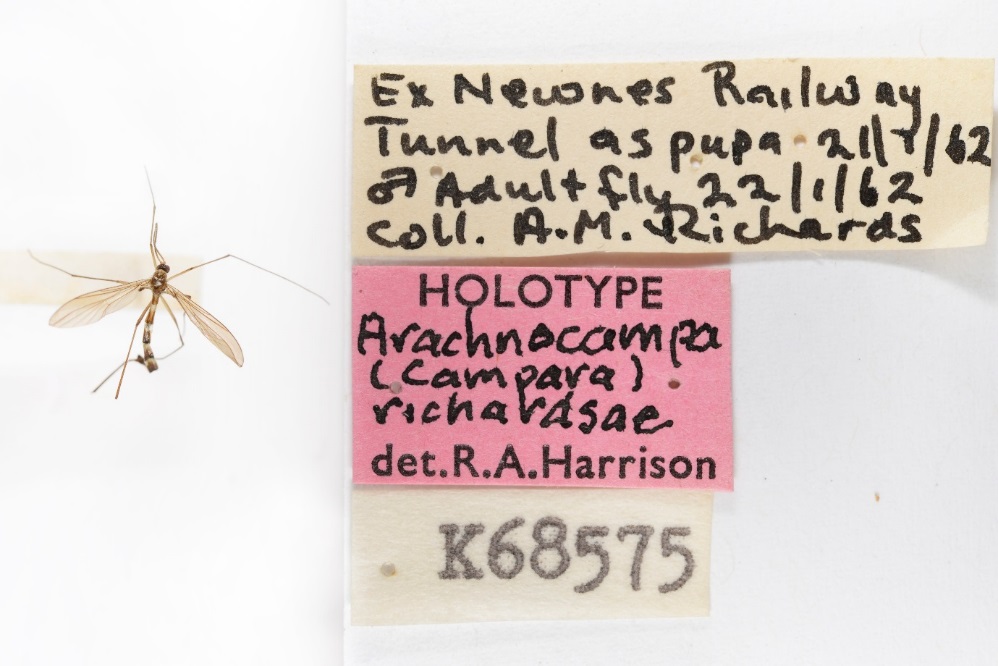 Ex Newnes Railway
Tunnel as pupa 21/1/62
♂ Adult fly 22/1/62
coll. A.M. Richards
HOLOTYPE
Arachnocampa
(Campara)
richardsae
det.R.A.Harrison
K68575